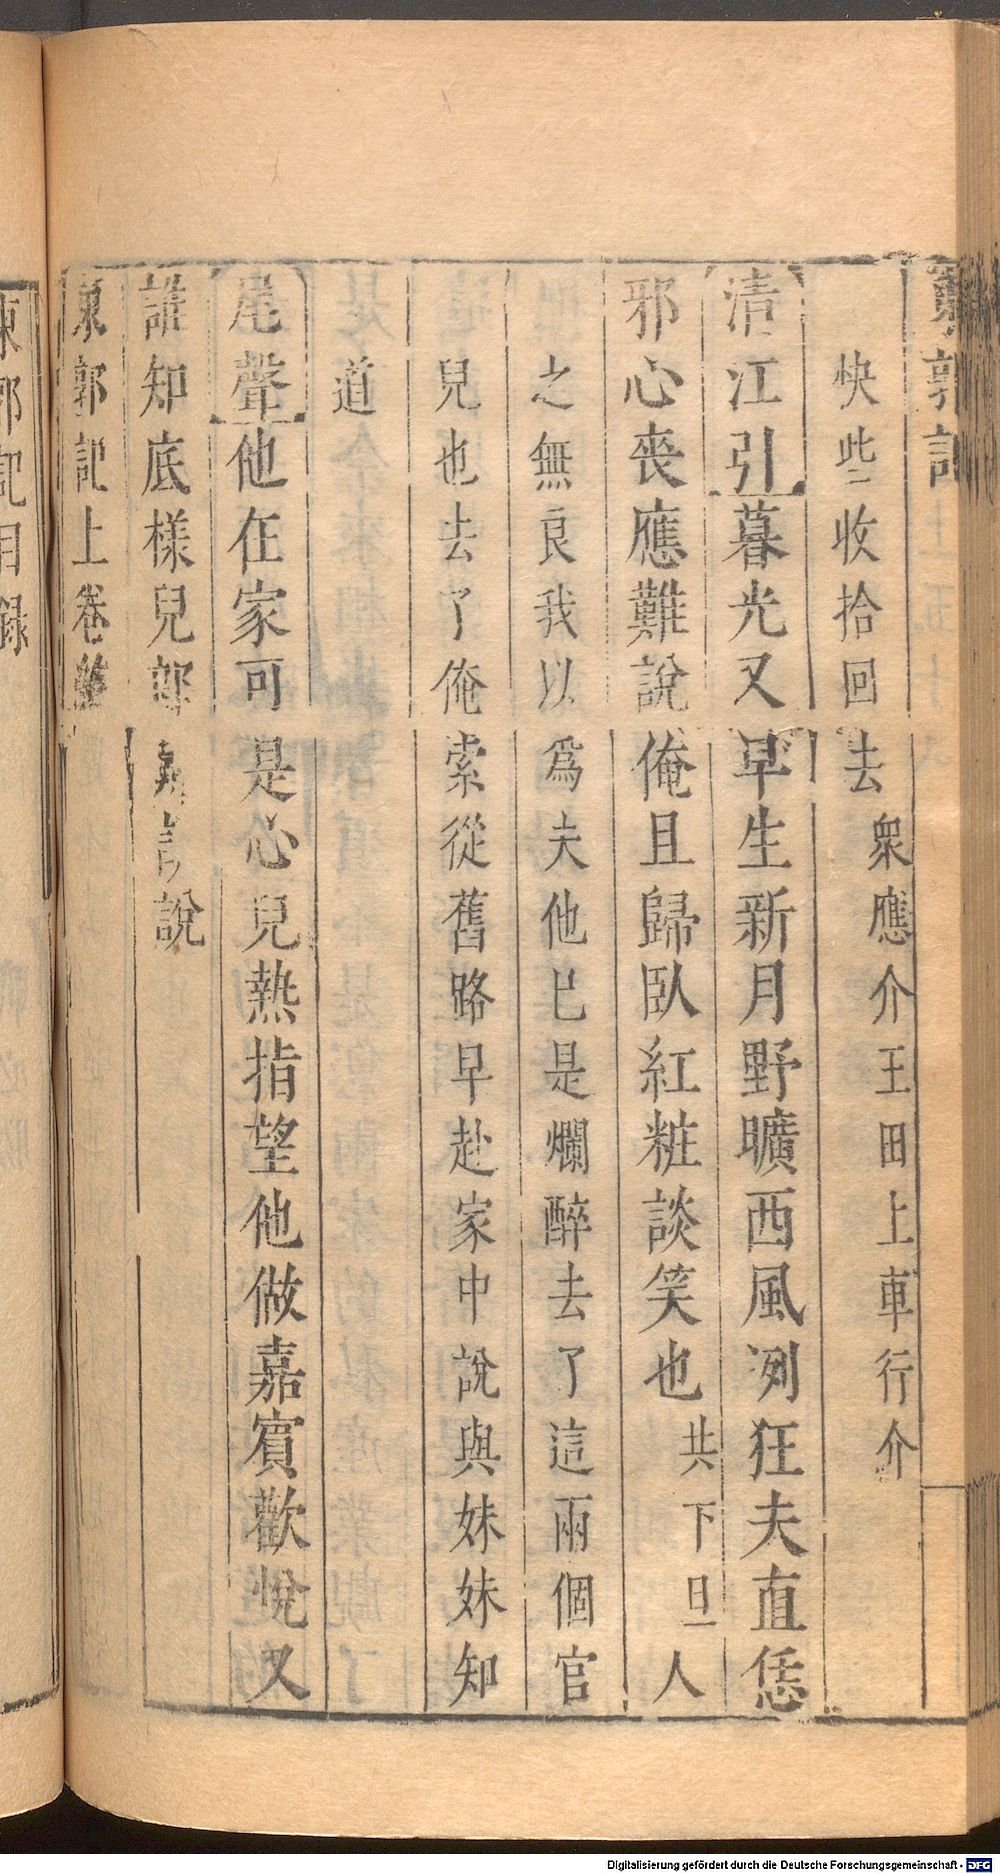 東郭記
快些收拾回去衆應介王田上車行介
清江引暮光又早生新月野曠西風冽狂夫直恁
邪心喪應難說俺且歸臥紅粧談笑也共下旦人
之無良我以爲夫他已是爛醉去了這兩個官
兒也去了俺索從舊路早赴家中說與妹妹知
道
尾聲他在家可是心兒熱指望他做嘉賓歡悅又
誰知底樣兒郎難言說
東郭記上卷
東郭記目錄
Digitalisierung gefördert durch die Deutsche Forschungsgemeinschaft - DFG